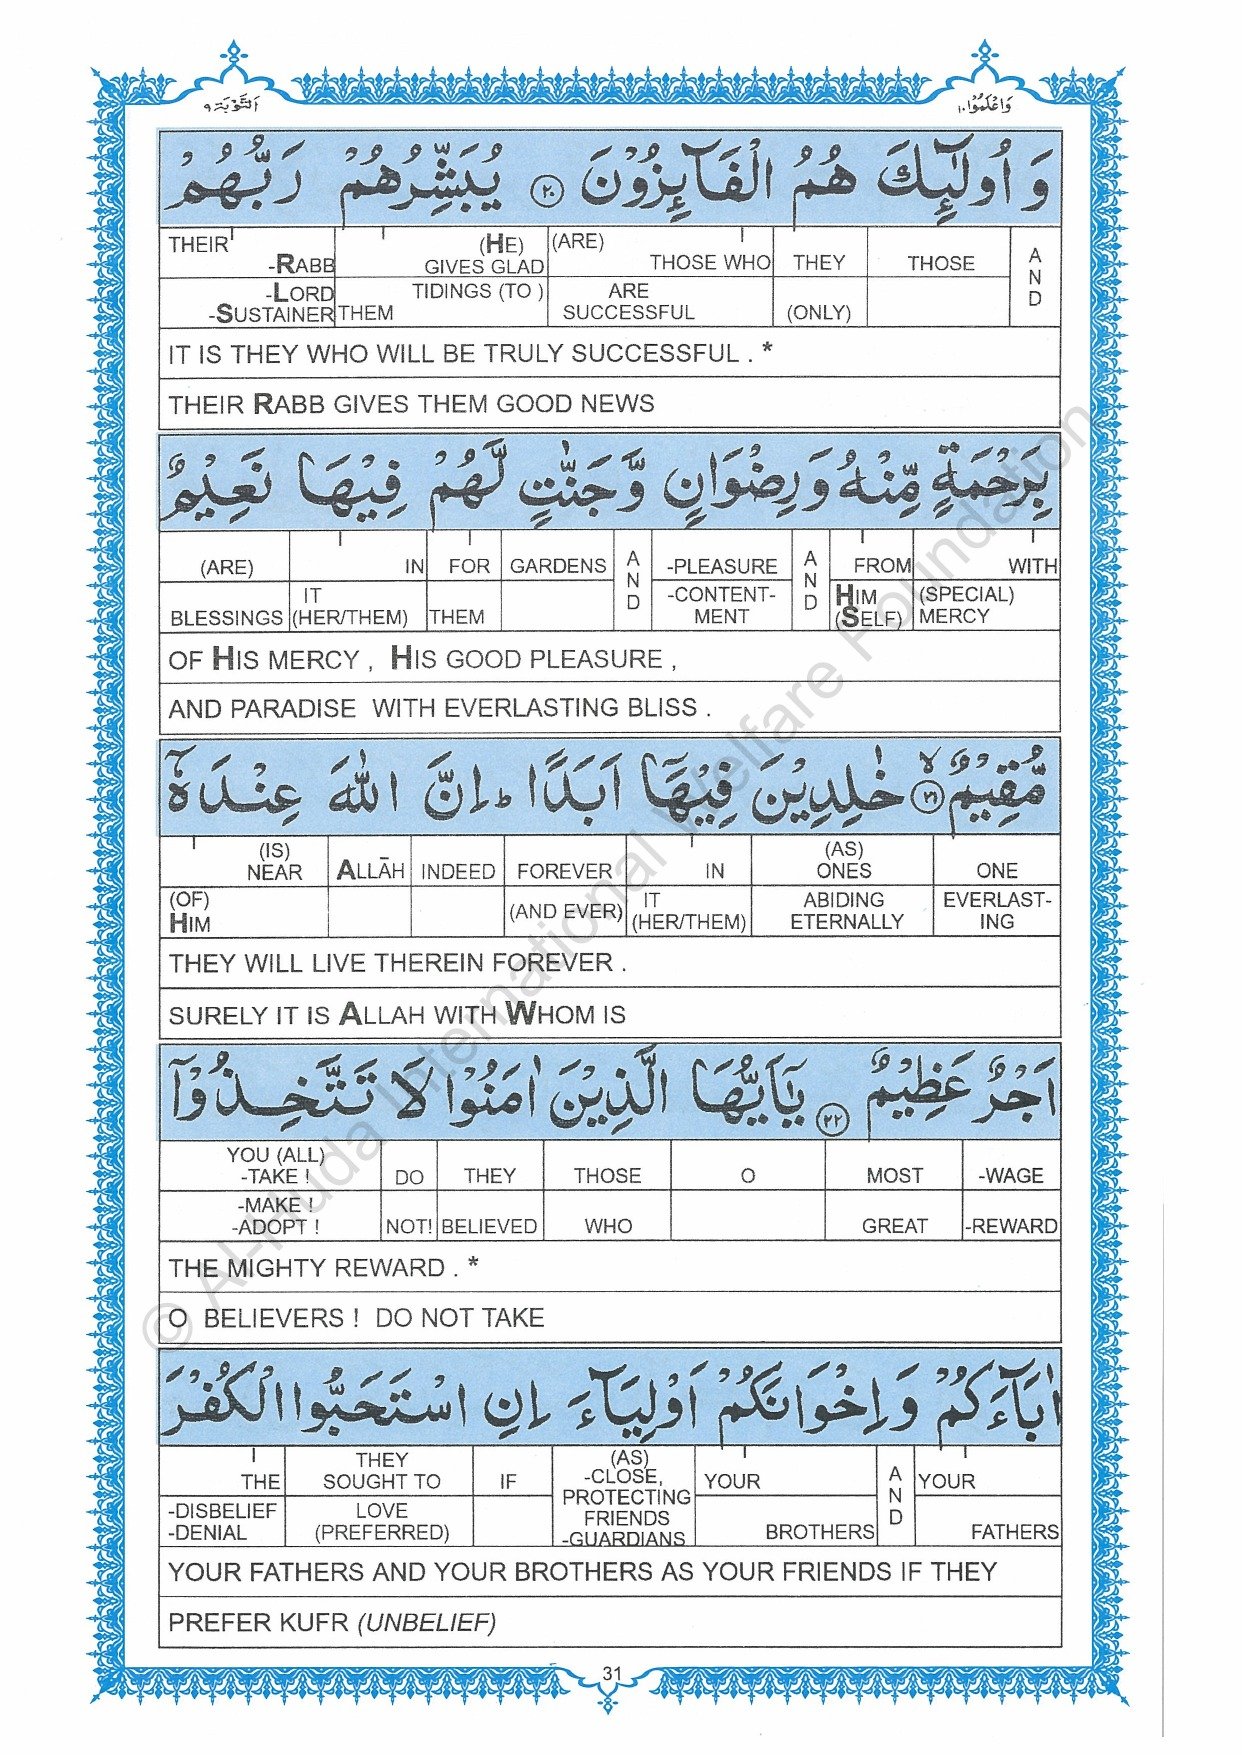 التَّوْبَة ٩
وَاعْلَمُوْا ١٠
وَ اُولٰٓئِكَ هُمُ الْفَآئِزُوْنَ ٢٠ يُبَشِّرُهُمْ رَبُّهُمْ
THEIR (HE) (ARE)
-RABB GIVES GLAD THOSE WHO THEY THOSE AND
-LORD TIDINGS (TO ) ARE
-SUSTAINER THEM SUCCESSFUL (ONLY)
IT IS THEY WHO WILL BE TRULY SUCCESSFUL . *
THEIR RABB GIVES THEM GOOD NEWS
بِرَحْمَةٍ مِّنْهُ وَرِضْوَانٍ وَّجَنّٰتٍ لَّهُمْ فِيْهَا نَعِيْمٌ
(ARE) IN FOR GARDENS AND -PLEASURE AND FROM WITH
IT -CONTENT- HIM (SPECIAL)
BLESSINGS (HER/THEM) THEM MENT (SELF) MERCY
OF HIS MERCY , HIS GOOD PLEASURE ,
AND PARADISE WITH EVERLASTING BLISS .
مُّقِيْمٌ ٢١ خٰلِدِيْنَ فِيْهَآ اَبَدًا ط اِنَّ اللّٰهَ عِنْدَهٗٓ
(IS) (AS)
NEAR ALLĀH INDEED FOREVER IN ONES ONE
(OF) IT ABIDING EVERLAST-
HIM (AND EVER) (HER/THEM) ETERNALLY ING
THEY WILL LIVE THEREIN FOREVER .
SURELY IT IS ALLAH WITH WHOM IS
اَجْرٌ عَظِيْمٌ ٢٢ يٰٓاَيُّهَا الَّذِيْنَ اٰمَنُوْا لَا تَتَّخِذُوْٓا
YOU (ALL)
-TAKE ! DO THEY THOSE O MOST -WAGE
-MAKE !
-ADOPT ! NOT! BELIEVED WHO GREAT -REWARD
THE MIGHTY REWARD . *
O BELIEVERS ! DO NOT TAKE
اٰبَآءَكُمْ وَ اِخْوَانَكُمْ اَوْلِيَآءَ اِنِ اسْتَحَبُّوا الْكُفْرَ
THEY (AS)
THE SOUGHT TO IF -CLOSE, YOUR AND YOUR
PROTECTING
-DISBELIEF LOVE FRIENDS
-DENIAL (PREFERRED) -GUARDIANS BROTHERS FATHERS
YOUR FATHERS AND YOUR BROTHERS AS YOUR FRIENDS IF THEY
PREFER KUFR (UNBELIEF)
31
© Al-Huda International Welfare Foundation